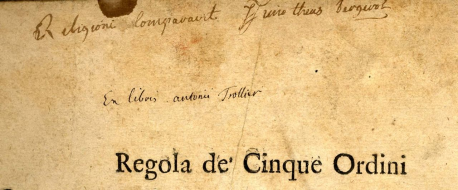 Religioni Comparavit
Ex libris antonii Trollier
Regola de' Cinque Ordini